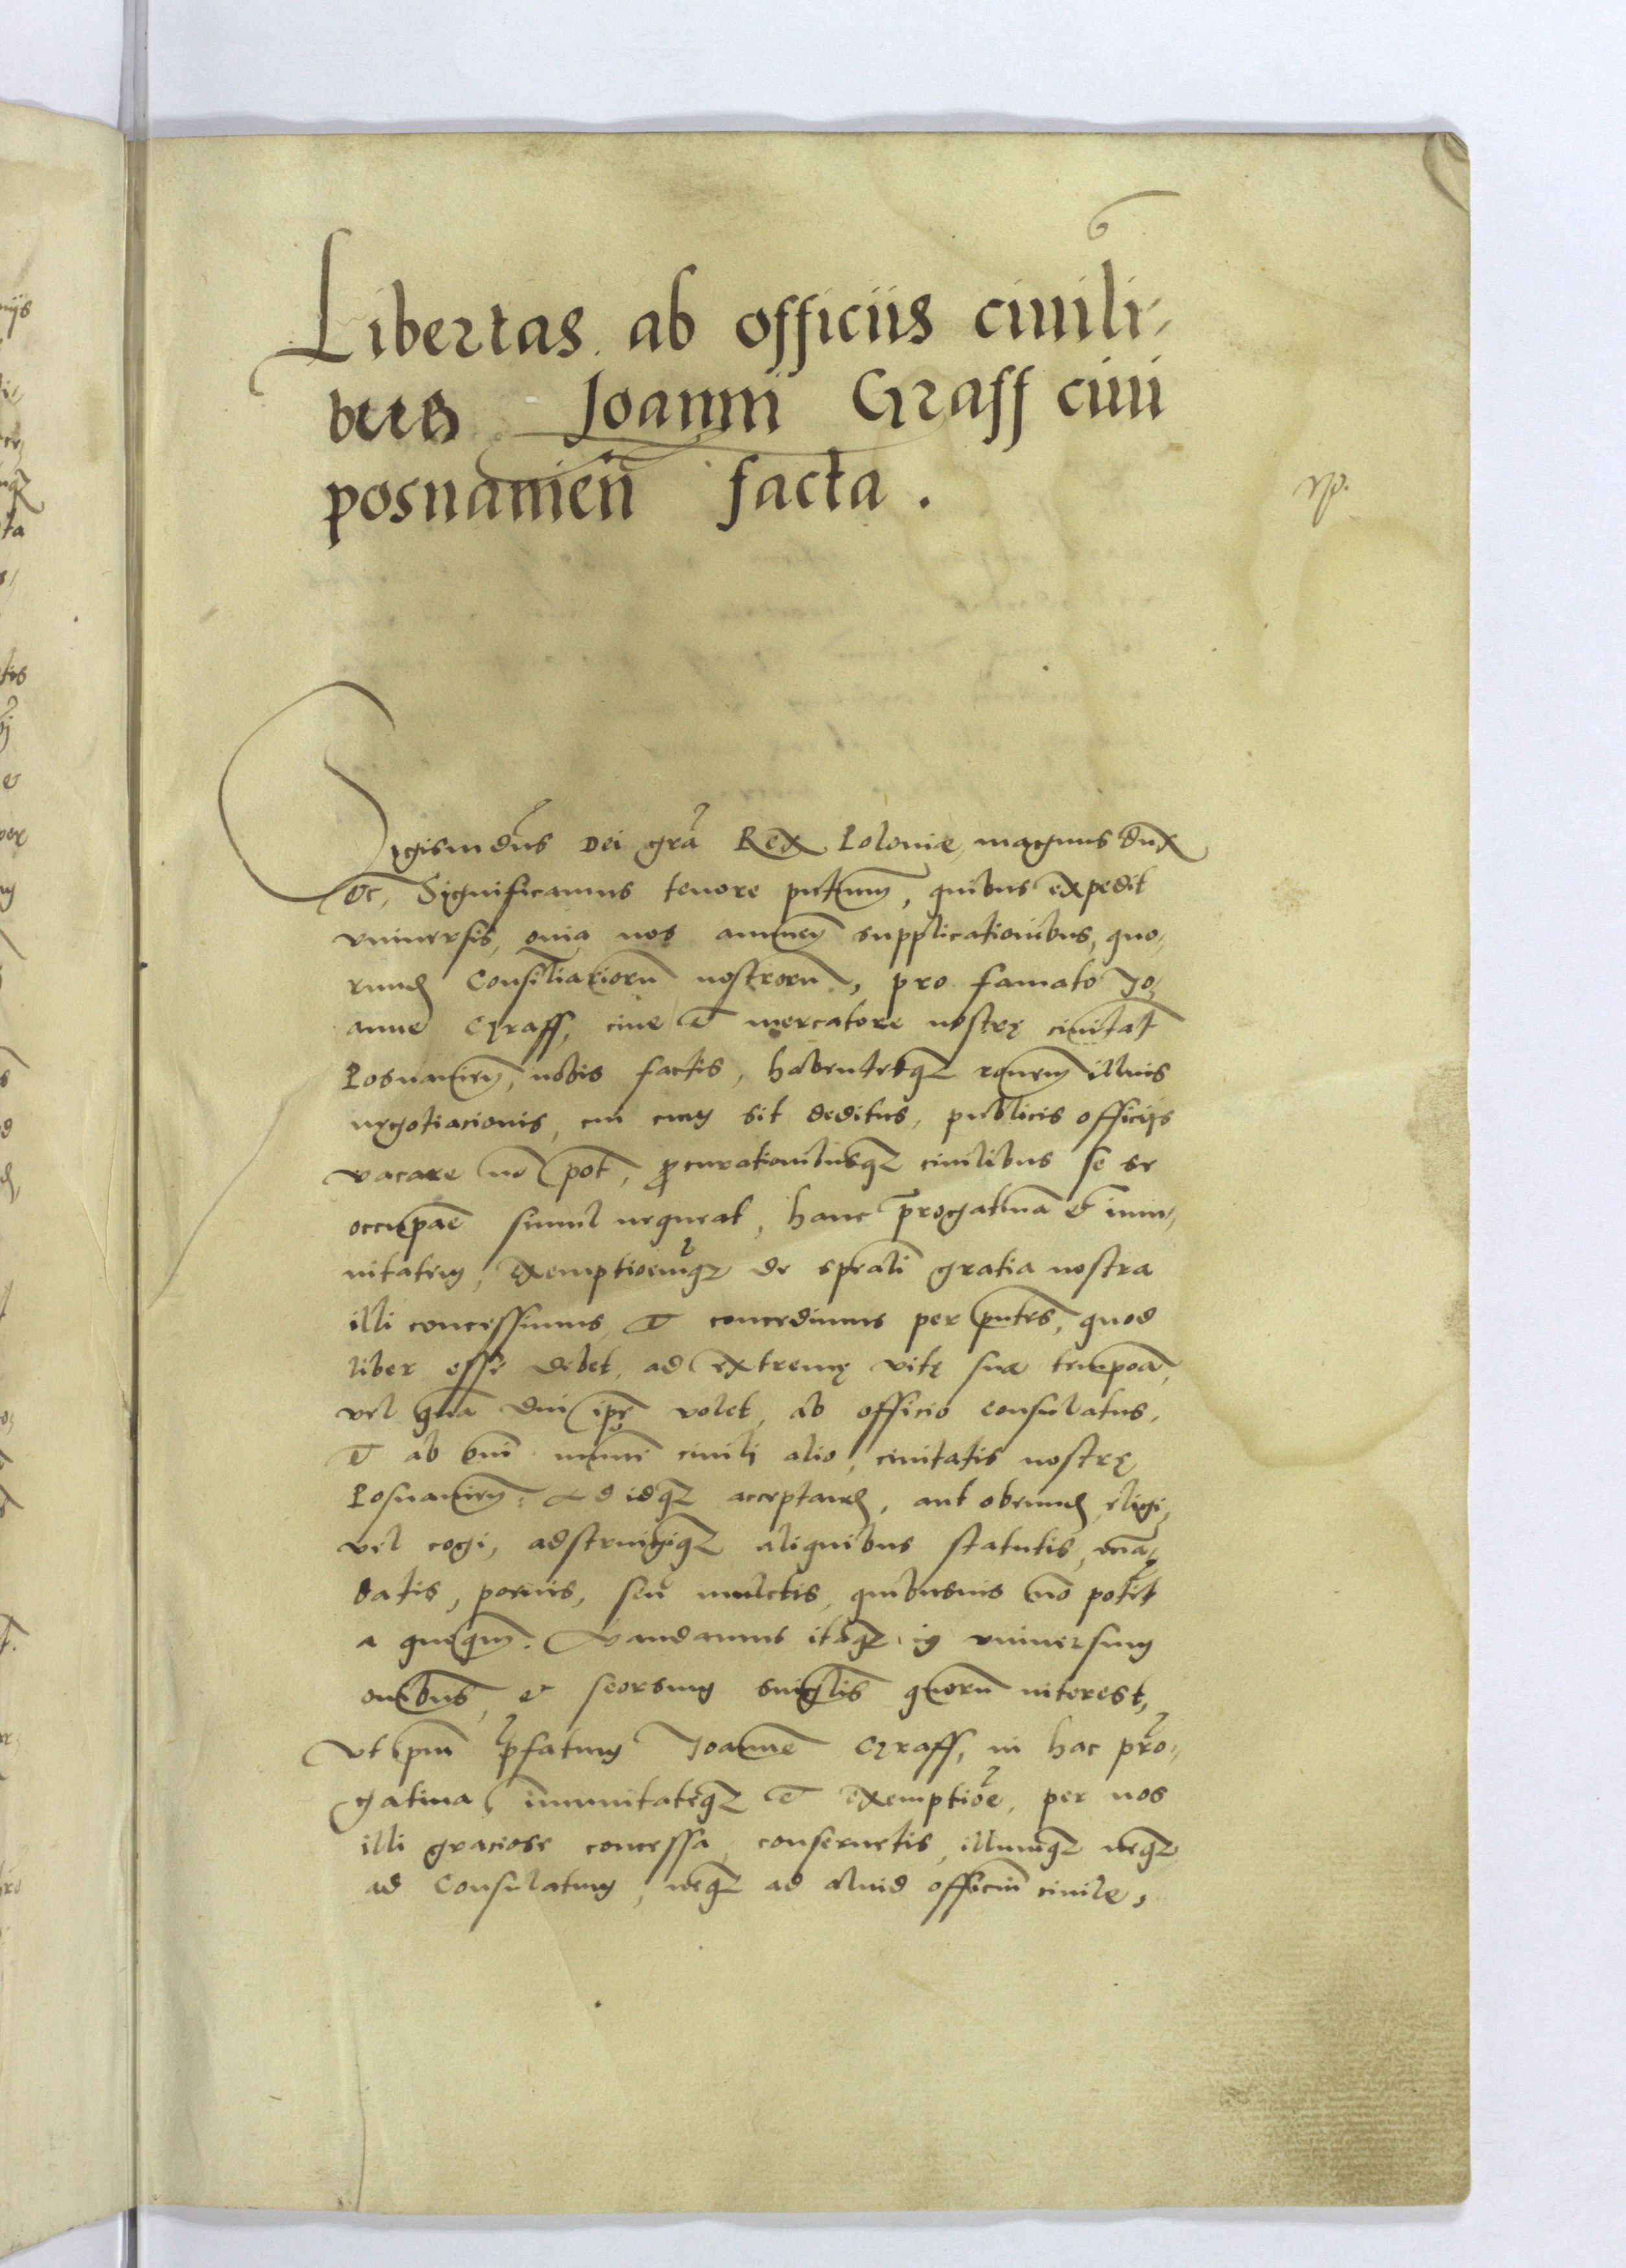 Libertas ab officiis ciuili-
bus Joanni Graff ciui
posnanien̄ facta.
Sigismūdus Dei grā Rex Poloniæ, magnus dux
etc̄, Significamus tenore pn̄tium, quibus expedit
vniuersis, quia nos annuen̄ supplicationibus, quo-
rund Consiliariorū nostrorū, pro famato Jo-
anne Graff, ciue et mercatore nostrę ciuitat̄
Posnanien̄, nobis factis, habentesq3 rōnem illius
negotiacionis, cui cum sit deditus, publicis officijs
vacare nō pot̄, procurationibusq3 ciuilibus se se
occupāe simul nequeat, hanc prērogatiuā et immu-
nitatem, exemptioēmq3 de speāli gratia nostra
illi concessimus et concedimus per pn̄tes, quod
liber esse debet, ad extremę vitę suæ tempoā,
vel quā diu ipse volet, ab officio consulatus,
et ab oīi mun̄e ciuili alio, ciuitatis nostrę
Posnanien̄: Ad idq3 acceptand, aut obeund, eligi,
vel cogi, adstringiq3 aliquibus statutis, mā-
datis, poenis, seu mulctis, quibusuis nō potīt
a quoqm̄. Mandamus itaq3 in vniuersum
om̄ibus, et seorsum singlīs quorū interest,
vt p̄fatum Joannē Graff, in hac prēro-
gatiua, immunitateq3 et exemptiōe, per nos
illi graciose concessa, conseruetis, illumq3 neq3
ad Consulatum, neq3 ad aliud officiū ciuile,